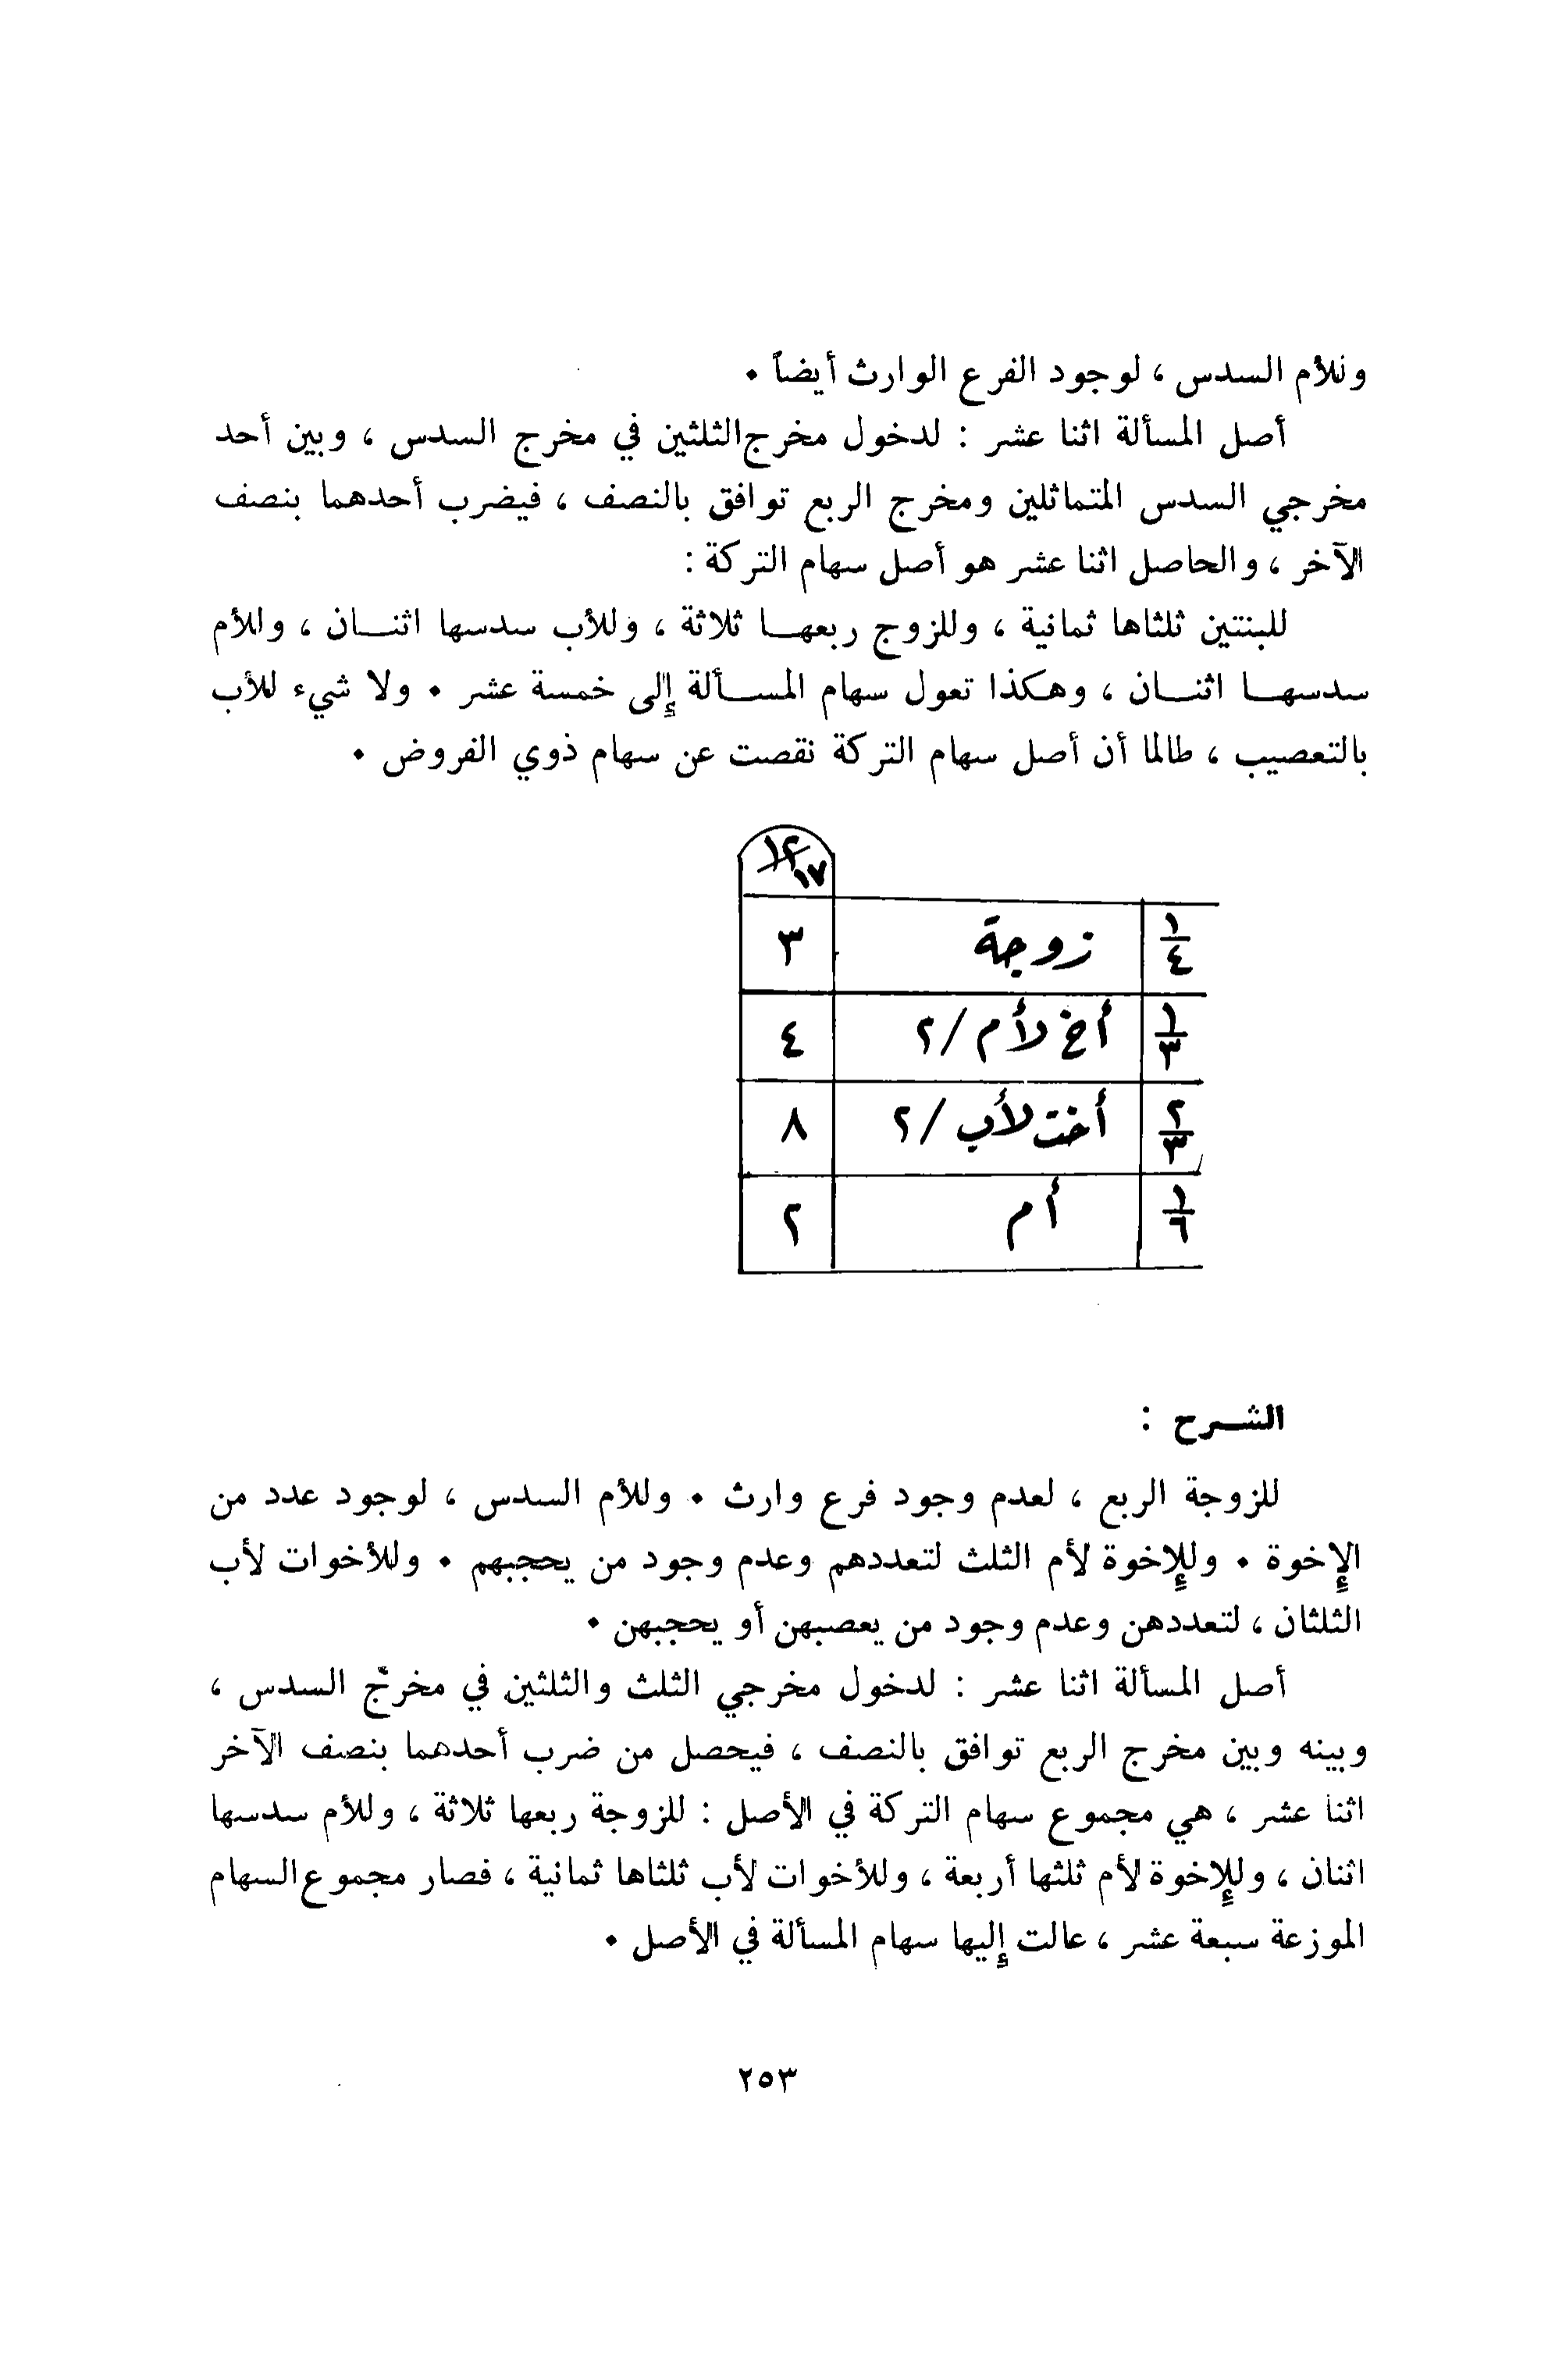 وللأم السدس ، لوجود الفرع الوارث أيضاً ٠
أصل المسألة اثنا عشر : لدخول مخرج الثلثين في مخرج السدس ، وبين أحد
مخرجي السدس المتماثلين ومخرج الربع توافق بالنصف ، فيضرب أحدهما بنصف
الآخر ، والحاصل اثنا عشر هو أصل سهام التركة :
للبنتين ثلثاها ثمانية ، وللزوج ربعهـا ثلاثة ، وللأب سدسها اثنـان ، وللأم
سدسهـا اثنـان ، وهكذا تعول سهام المسـألة إلى خمسة عشر ٠ ولا شيء للأب
بالتعصيب ، طالما أن أصل سهام التركة نقصت عن سهام ذوي الفروض ٠
١٢
١٧
١/٤ زوجة ٣
١/٣ أخ لأم /٢ ٤
٢/٣ أخت لأب /٢ ٨
١/٦ أم ٢
الشـرح :
للزوجة الربع ، لعدم وجود فرع وارث ٠ وللأم السدس ، لوجود عدد من
الإخوة ٠ وللإخوة لأم الثلث لتعددهم وعدم وجود من يحجبهم ٠ وللأخوات لأب
الثلثان ، لتعددهن وعدم وجود من يعصبهن أو يحجبهن ٠
أصل المسألة اثنا عشر : لدخول مخرجي الثلث والثلثين في مخرج السدس ،
وبينه وبين مخرج الربع توافق بالنصف ، فيحصل من ضرب أحدهما بنصف الآخر
اثنا عشر ، هي مجموع سهام التركة في الأصل : للزوجة ربعها ثلاثة ، وللأم سدسها
اثنان ، وللإخوة لأم ثلثها أربعة ، وللأخوات لأب ثلثاها ثمانية ، فصار مجموع السهام
الموزعة سبعة عشر ، عالت إليها سهام المسألة في الأصل ٠
٢٥٣